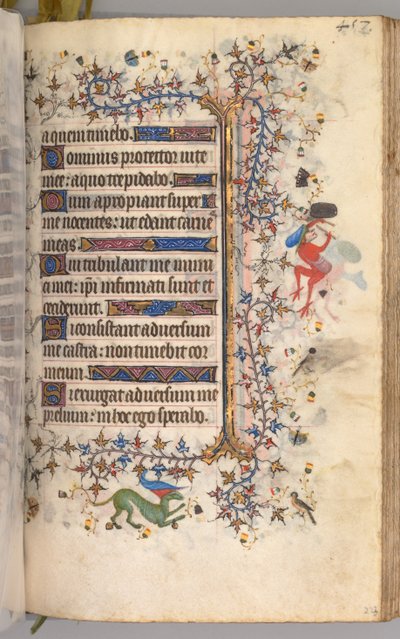 457
a quem timebo.
Dominus protector vite
mee: a quo trepidabo.
Dum apropiant super
me nocentes: ut edant carnes
meas.
Qui tribulant me inimi
ci mei: ipsi infirmati sunt et
ceciderunt.
Si consistant adversum
me castra: non timebit cor
meum.
Si exurgat adversum me
prelium: in hoc ego sperabo.